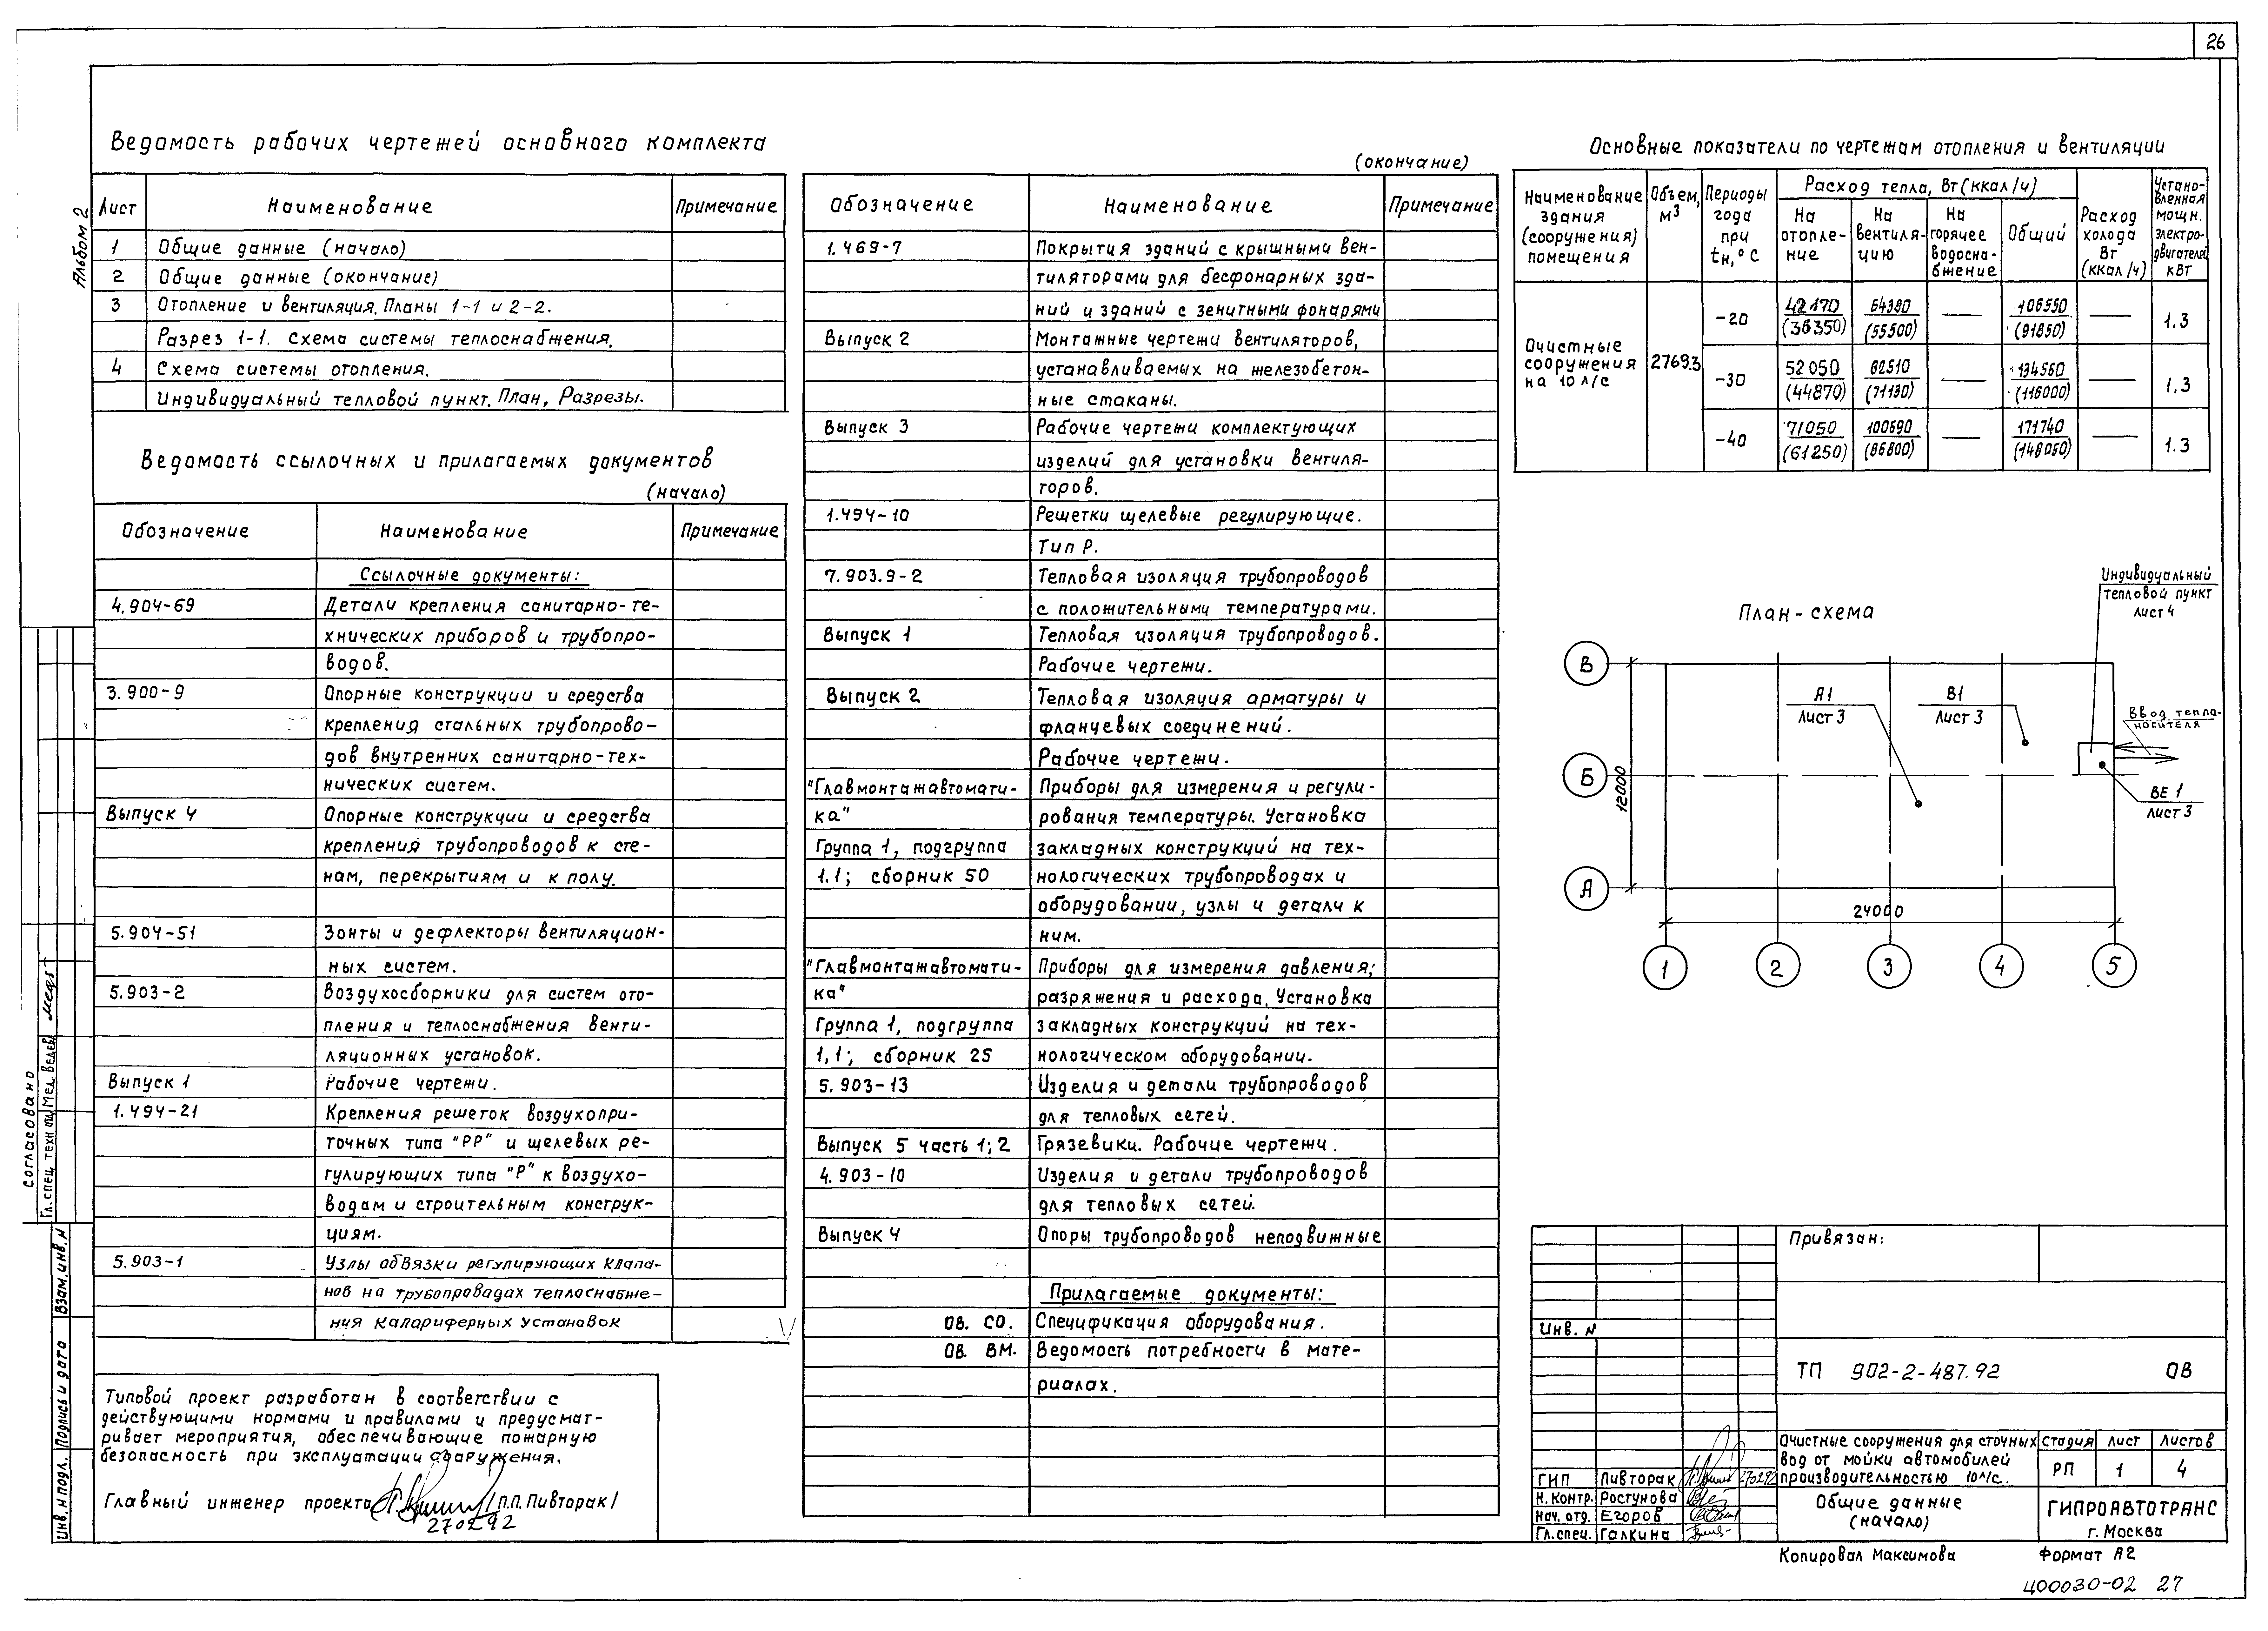 26
Альбом 2
Ведомость рабочих чертежей основного комплекта
Лист Наименование Примечание
1 Общие данные (начало)
2 Общие данные (окончание)
3 Отопление и вентиляция. Планы 1-1 и 2-2.
Разрез 1-1. Схема системы теплоснабжения.
4 Схема системы отопления.
Индивидуальный тепловой пункт. План, Разрезы.
Ведомость ссылочных и прилагаемых документов
(начало)
Обозначение Наименование Примечание
Ссылочные документы:
4.904-69 Детали крепления санитарно-те-
хнических приборов и трубопро-
водов.
3.900-9 Опорные конструкции и средства
крепления стальных трубопрово-
дов внутренних санитарно-тех-
нических систем.
Выпуск 4 Опорные конструкции и средства
крепления трубопроводов к сте-
нам, перекрытиям и к полу.
5.904-51 Зонты и дефлекторы вентиляцион-
ных систем.
5.903-2 Воздухосборники для систем ото-
пления и теплоснабжения венти-
ляционных установок.
Выпуск 1 Рабочие чертежи.
1.494-21 Крепления решеток воздухопри-
точных типа "РР" и щелевых ре-
гулирующих типа "Р" к воздухо-
водам и строительным конструк-
циям.
5.903-1 Узлы обвязки регулирующих клапа-
нов на трубопроводах теплоснабже-
ния калориферных установок
Типовой проект разработан в соответствии с
действующими нормами и правилами и предусмат-
ривает мероприятия, обеспечивающие пожарную
безопасность при эксплуатации сооружения.
Главный инженер проекта /П.П. Пивторак/
270292
(окончание)
Обозначение Наименование Примечание
1.469-7 Покрытия зданий с крышными вен-
тиляторами для бесфонарных зда-
ний и зданий с зенитными фонарями
Выпуск 2 Монтажные чертежи вентиляторов,
устанавливаемых на железобетон-
ные стаканы.
Выпуск 3 Рабочие чертежи комплектующих
изделий для установки вентиля-
торов.
1.494-10 Решетки щелевые регулирующие.
Тип Р.
7.903.9-2 Тепловая изоляция трубопроводов
с положительными температурами.
Выпуск 1 Тепловая изоляция трубопроводов.
Рабочие чертежи.
Выпуск 2 Тепловая изоляция арматуры и
фланцевых соединений.
Рабочие чертежи.
"Главмонтажавтомати- Приборы для измерения и регули-
ка" рования температуры. Установка
Группа 1, подгруппа закладных конструкций на тех-
1.1; сборник 50 нологических трубопроводах и
оборудовании, узлы и детали к
ним.
"Главмонтажавтомати- Приборы для измерения давления;
ка" разряжения и расхода. Установка
Группа 1, подгруппа закладных конструкций на тех-
1,1; сборник 25 нологическом оборудовании.
5.903-13 Изделия и детали трубопроводов
для тепловых сетей.
Выпуск 5 часть 1; 2 Грязевики. Рабочие чертежи.
4.903-10 Изделия и детали трубопроводов
для тепловых сетей.
Выпуск 4 Опоры трубопроводов неподвижные
Прилагаемые документы:
ОВ. СО. Спецификация оборудования.
ОВ. ВМ. Ведомость потребности в мате-
риалах.
Основные показатели по чертежам отопления и вентиляции
Наименование здания (сооружения) помещения Объем, м³ Периоды года при tн,°С Расход тепла, Вт (ккал/ч) Расход холода Вт (ккал/ч) Установленная мощн. электродвигателей кВт
На отопле-ние На вентиля-цию На горячее водосна-бжение Общий
Очистные сооружения на 10 л/с 2769.3
-20 42170 (36350) 64380 (55500) — 106550 (91850) — 1.3
-30 52050 (44870) 82510 (71130) — 134560 (116000) — 1.3
-40 71050 (61250) 100690 (86800) — 171740 (148050) — 1.3
План-схема
Индивидуальный
тепловой пункт
Лист 4
В
Б
А
12000
А1
Лист 3
В1
Лист 3
Ввод тепло-
носителя
ВЕ 1
Лист 3
24000
1 2 3 4 5
Привязан:
Инв. N
ТП 902-2-487.92 ОВ
Очистные сооружения для сточных
вод от мойки автомобилей
производительностью 10 л/с.
Стадия Лист Листов
РП 1 4
ГИП Пивторак 270292
Н. контр. Ростунова
Нач. отд. Егоров
Гл. спец. Галкина
Общие данные
(начало)
ГИПРОАВТОТРАНС
г. Москва
Копировал Максимова Формат А2
Ц00030-02 27
Согласовано
Гл. спец. техн отд Медведев
Взам. инв. N
Подпись и дата
Инв. N подл.